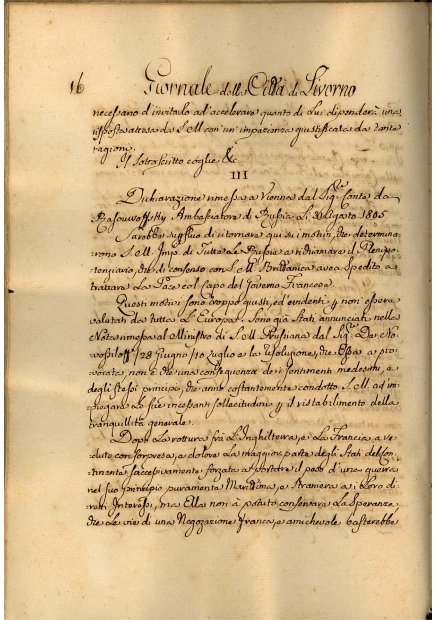 16 Giornale della Città di Livorno
necessario d'invitarlo ad'accelerare quanto di Lui dipenderà una
risposta attesa da S. M. con un' impazienza giustificata da tante
ragioni.
Il Sottoscritto coglie &c
III
Dichiarazione rimessa a Vienna dal Sigr. Conte de
Rasouwoffsky Ambasciatore di Russia Li Agosto 1805
Sarebbe superfluo di ritornare qui su i motivi, che determina-
rono S. M. Imp. di Tutte Le Russie a richiamare il Plenipo-
tenziario, che di consenso con S. M. Brittanica avea Spedito a
trattare La Pace col Capo del Governo Francese
Questi motivi son troppo giusti, ed evidenti p non essere
valutati da tutta L'Europa. Sono già Stati annunciati nella
Nota rimessa al Ministro di S. M. Prussiana dal Sigr. De No-
vosiloff 28 Giugno /10 Luglio e la risoluzione, che Essa a pro-
vocata non è che una conseguenza de i sentimenti medesimi, e
degli stessi principi, che anno costantemente condotto S. M. ad im-
piegare Le sue incessanti sollecitudini p il ristabilimento della
tranquillità generale.
Dopo La rottura frà L'Inghilterra, e La Francia a ve-
duto con sorpresa, e dolore La maggior parte degli Stati del Con-
tinente successivamente forzata a portare il peso d'una guerra
nel suo principio puramente Marittima, e Straniera a i Loro di-
retti Interessi, ma Ella non à potuto conservare La Speranza,
che Le vie di una Negoziazione franca, e amichevole basterebbe